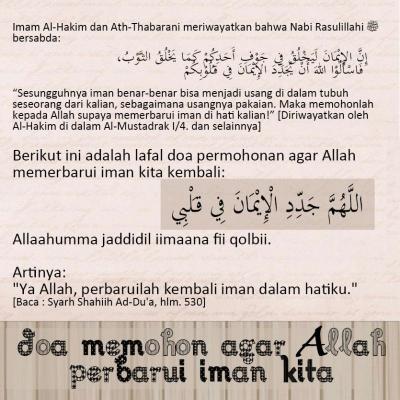 Imam Al-Hakim dan Ath-Thabarani meriwayatkan bahwa Nabi Rasulillahi ﷺ
bersabda:
إِنَّ الإِيْمَانَ لَيَخْلُقُ فِي جَوْفِ أَحَدِكُمْ كَمَا يَخْلُقُ الثَّوْبُ،
فَاسْأَلُوا اللهَ أَنْ يُجَدِّدَ الْإِيْمَانَ فِي قُلُوْبِكُمْ
“Sesungguhnya iman benar-benar bisa menjadi usang di dalam tubuh
seseorang dari kalian, sebagaimana usangnya pakaian. Maka memohonlah
kepada Allah supaya memerbarui iman di hati kalian!” [Diriwayatkan oleh
Al-Hakim di dalam Al-Mustadrak I/4. dan selainnya]
Berikut ini adalah lafal doa permohonan agar Allah
memerbarui iman kita kembali:
اللَّهُمَّ جَدِّدِ الْإِيْمَانَ فِي قَلْبِي
Allaahumma jaddidil iimaana fii qolbii.
Artinya:
"Ya Allah, perbaruilah kembali iman dalam hatiku."
[Baca : Syarh Shahiih Ad-Du'a, hlm. 530]
doa memohon agar Allah
perbarui iman kita